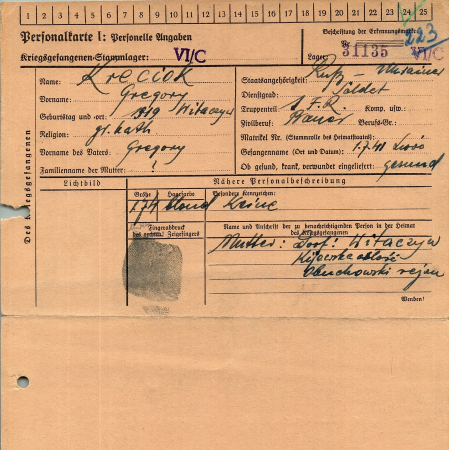 1 2 3 4 5 6 7 8 9 10 11 12 13 14 15 16 17 18 19 20 21 22 23 24 25
Personalkarte I: Personelle Angaben
Beschriftung der Erkennungsmarke
223
Nr. 31135
Kriegsgefangenen-Stammlager: VI/C
Lager: VI/C
Des Kriegsgefangenen
Name: Kreciok
Staatsangehörigkeit: Ruß-Ukrainer
Vorname: Gregory
Dienstgrad: Soldat
Geburtstag und -ort: 1919 Witaczyw
Truppenteil: I.R. Komp. usw.:
Religion: gr. kath
Zivilberuf: Bauer Berufs-Gr.:
Vorname des Vaters: Gregory
Matrikel Nr. (Stammrolle des Heimatstaates):
Gefangennahme (Ort und Datum): 1.7.41
Familienname der Mutter: !
Ob gesund, krank, verwundet eingeliefert: gesund
Lichtbild
Nähere Personalbeschreibung
Größe Haarfarbe Besondere Kennzeichen:
blond Keine
Fingerabdruck des rechten Zeigefingers
Name und Anschrift der zu benachrichtigenden Person in der Heimat des Kriegsgefangenen
Mutter: Dorf: Witaczyw
Obuchowski rejon
Wenden!